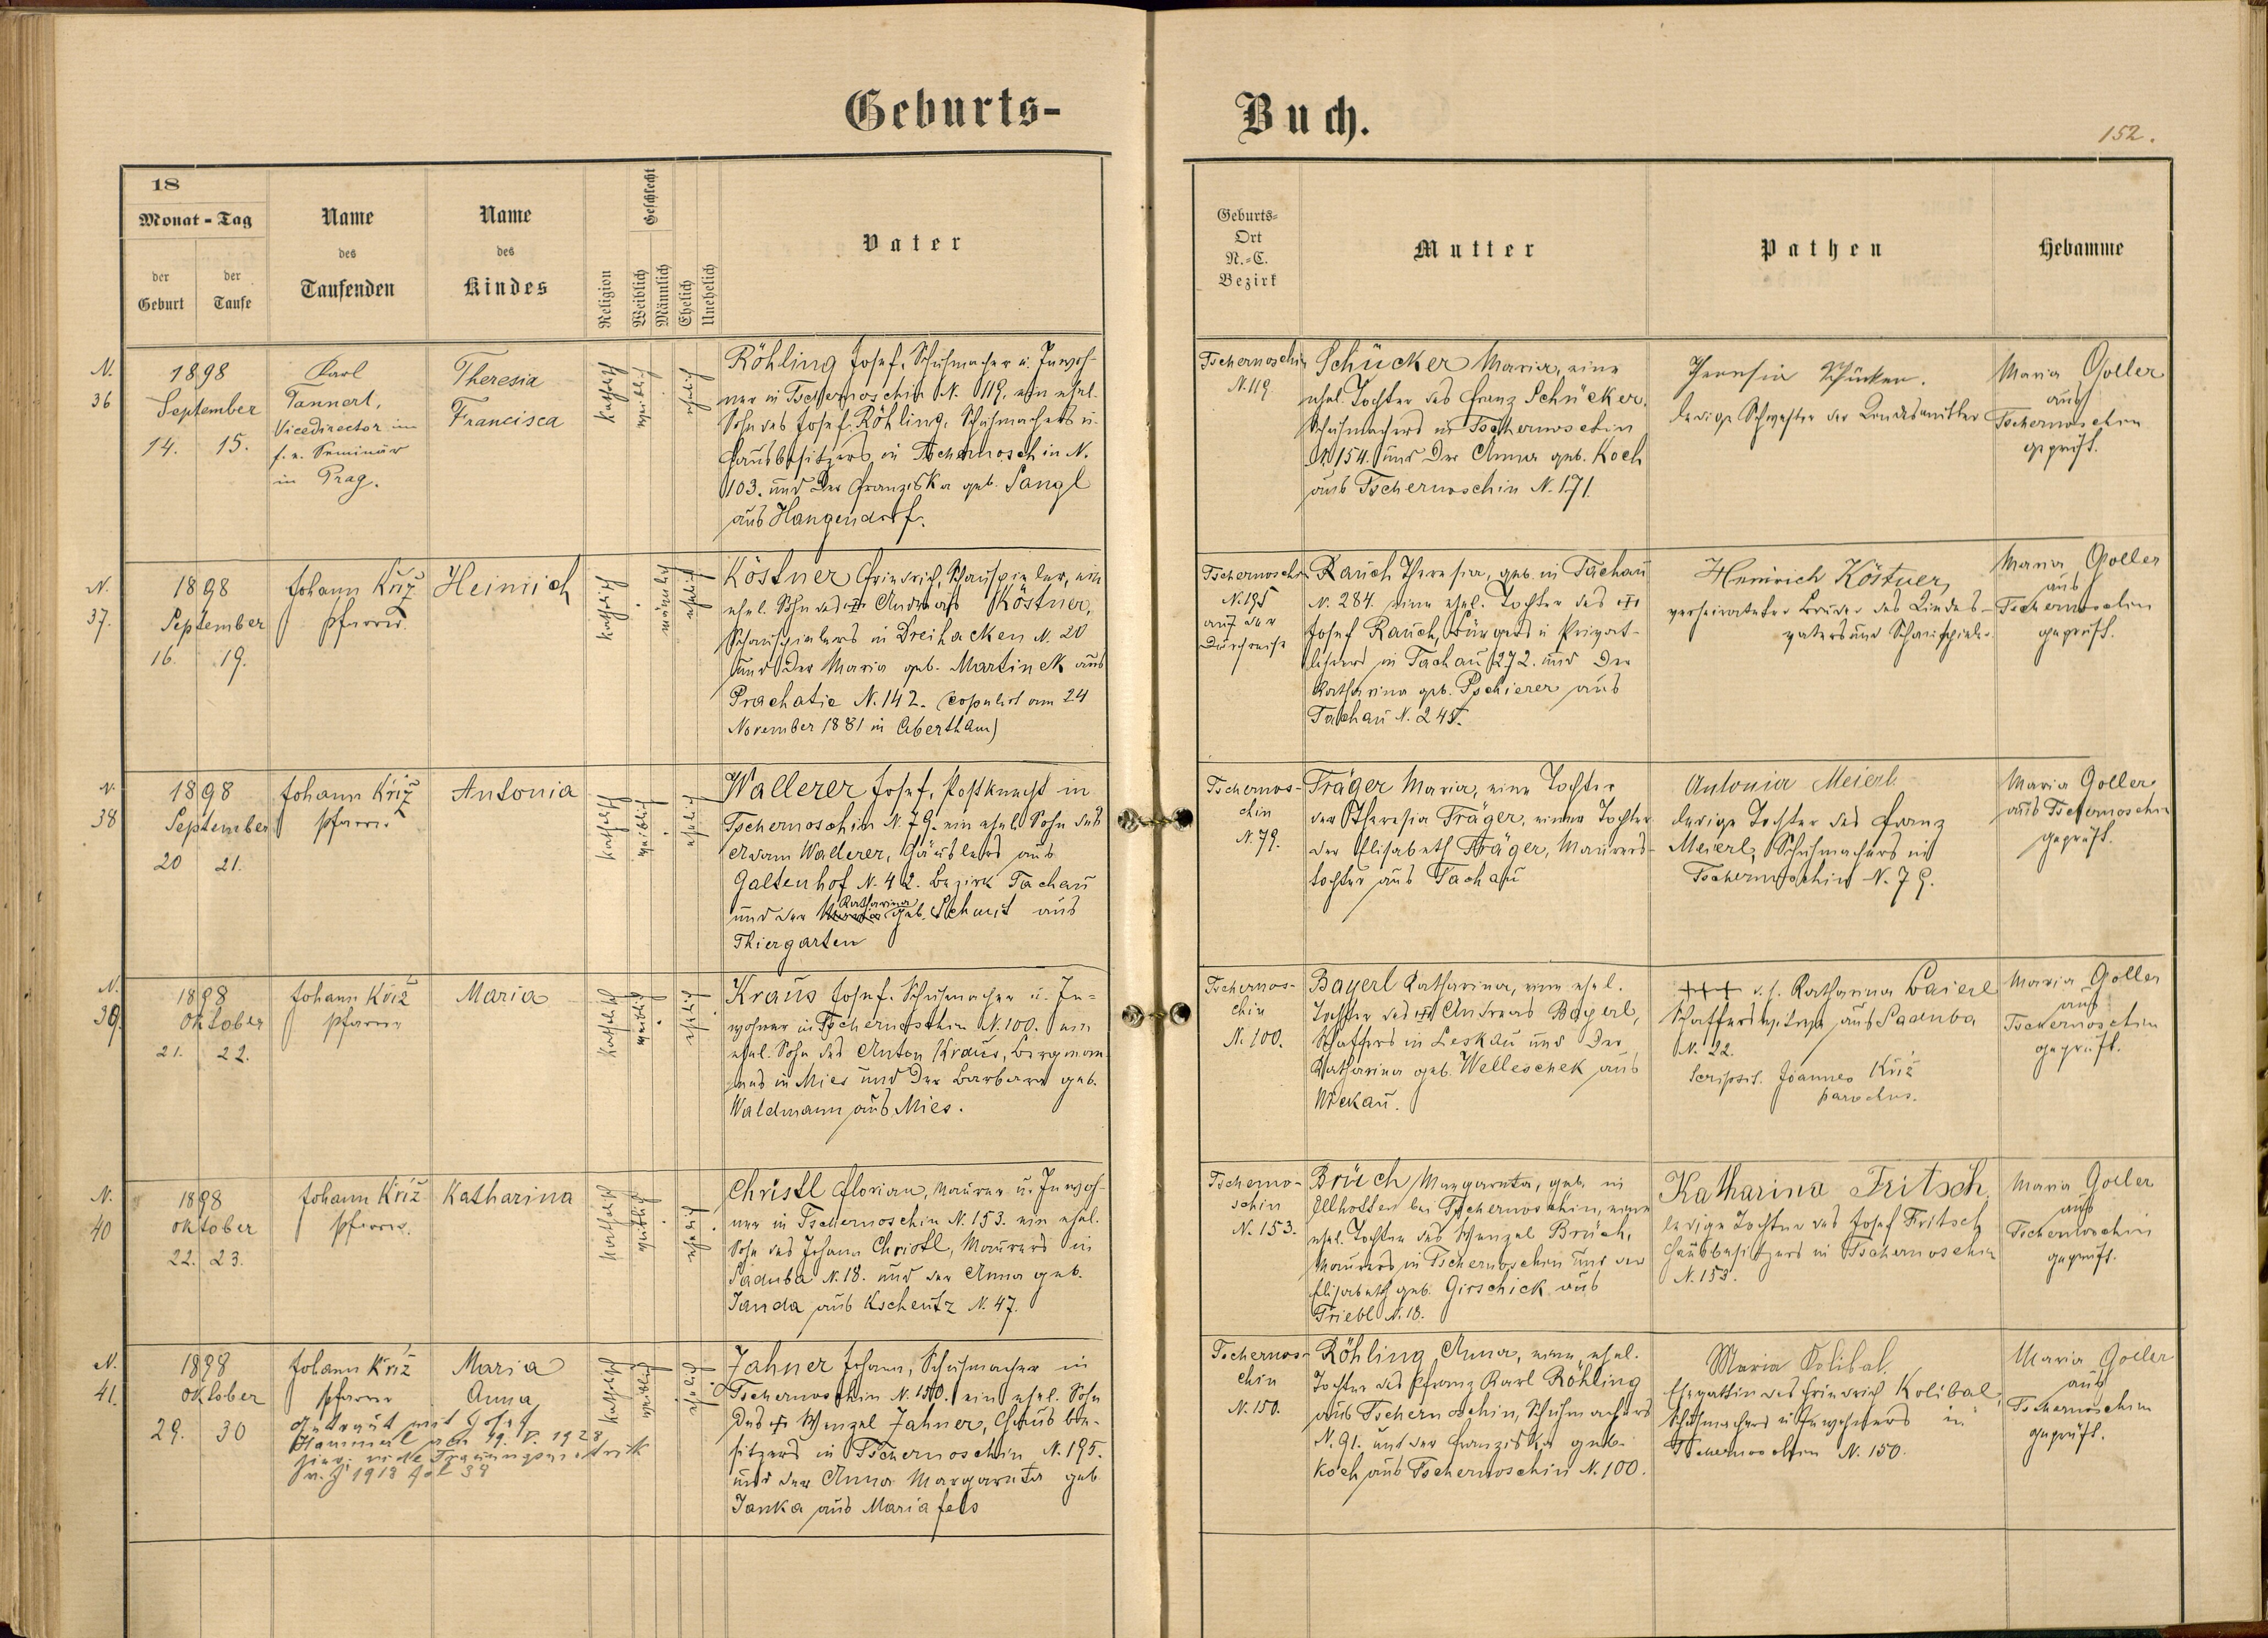 Geburts-
Buch.
152.
18
Monat - Tag
der Geburt
der Taufe
Name des Taufenden
Name des Kindes
Religion
Geschlecht
Weiblich
Männlich
Ehelich
Unehelich
Vater
Geburts-Ort N.-C. Bezirk
Mutter
Pathen
Hebamme
N. 36
1898
September
14. 15.
Karl
Tannert,
Vicedirector im
f. e. Seminär
in Prag.
Theresia
Francisca
katholisch
weiblich
ehelich
Röhling Josef, Schuhmacher u. Inwoh-
ner in Tschernoschin N. 119. ein ehel.
Sohn des Josef Röhling, Schuhmachers u.
Hausbesitzers in Tschernoschin N.
103. und der Franziska geb. Sangl
aus Hangendorf.
Tschernoschin
N. 119
Schücker Maria, eine
ehel. Tochter des Franz Schücker,
Schuhmachers in Tschernoschin
N. 154. und der Anna geb. Koch
aus Tschernoschin N. 171.
Theresia Schücker.
ledige Schwester der Kindesmutter
Maria Goller
aus
Tschernoschin
geprüft.
N. 37.
1898
September
16. 19.
Johann Kříž
Pfarrer
Heinrich
katholisch
männlich
ehelich
Köstner Friedrich, Schauspieler, ein
ehel. Sohn des Andreas Köstner,
Schauspielers in Dreihacken N. 20
und der Maria geb. Martinek aus
Prachatic N. 142. (copulirt am 24
November 1881 in Abertham)
Tschernoschin
N. 195
auf der
Durchreise
Rauch Theresia, geb. in Tachau
N. 284. eine ehel. Tochter des
Josef Rauch, Bürgers u. Privat-
lehrers in Tachau 272. und der
Katharina geb. Pschierer aus
Tachau N. 245.
Heinrich Köstner,
verheirateter Bruder des Kindes-
vaters und Schauspieler
Maria Goller
aus
Tschernoschin
geprüft.
N. 38
1898
September
20 21.
Johann Kříž
Pfarrer
Antonia
katholisch
weiblich
ehelich
Wallerer Josef, Postknecht in
Tschernoschin N. 79. ein ehel. Sohn des
Adam Wallerer, Häuslers aus
Galtenhof N. 42. Bezirk Tachau
Katharina
und der geb. Schmit aus
Thiergarten
Tschernos-
chin
N. 79.
Träger Maria, eine Tochter
der Theresia Träger, einer Tochter
der Elisabeth Träger, Maurers-
tochter aus Tachau
Antonia Meierl
ledige Tochter des Franz
Meierl, Schuhmachers in
Tschernoschin N. 79.
Maria Goller
aus Tschernoschin
geprüft.
N. 39.
1898
Oktober
21. 22.
Johann Kříž
Pfarrer
Maria
katholisch
weiblich
ehelich
Kraus Josef. Schuhmacher u. In-
wohner in Tschernoschin N. 100. ein
ehel. Sohn des Anton Kraus, Bergmann-
nes in Mies und der Barbara geb.
Waldmann aus Mies.
Tschernos-
chin
N. 100.
Bayerl Katharina, eine ehel.
Tochter des Andreas Bayerl,
Schaffers in Leskau und der
Katharina geb. Welleschek aus
Wickau.
+++ d. h. Katharina Baierl
Schafferswitwe aus Saduba
N. 22.
Scripsit. Joannes Kříž
parochus.
Maria Goller
aus
Tschernoschin
geprüft.
N. 40
1898
Oktober
22. 23.
Johann Kříž
Pfarrer.
Katharina
katholisch
weiblich
ehelich
Christl Florian, Maurer u. Inwoh-
ner in Tschernoschin N. 153. ein ehel.
Sohn des Johann Christl, Maurers in
Saduba N. 18. und der Anna geb.
Janda aus Kscheutz N. 47.
Tscherno-
schin
N. 153.
Brüch Margareta, geb. in
Ellhotten bei Tschernoschin, eine
ehel. Tochter des Wenzel Brüch,
Maurers in Tschernoschin und der
Elisabeth geb. Girschick aus
Triebl N. 18.
Katharina Fritsch,
ledige Tochter des Josef Fritsch
Hausbesitzers in Tschernoschin
N. 153.
Maria Goller
aus
Tschernoschin
geprüft.
N. 41.
1898
Oktober
29. 30
Johann Kříž
Pfarrer
Maria
Anna
Getraut mit Josef
Hammerl am 19. V. 1928
katholisch
weiblich
ehelich
Jahner Johann, Schuhmacher in
Tschernoschin N. 150. ein ehel. Sohn
des Wenzel Jahner, Hausbe-
sitzers in Tschernoschin N. 195.
und der Anna Margareta geb
Janka aus Mariafels
Tschernos-
chin
N. 150.
Röhling Anna, eine ehel.
Tochter des Franz Karl Röhling
aus Tschernoschin, Schuhmachers
N. 91. und der Franziska geb.
Koch aus Tschernoschin N. 100.
Maria Kolibal,
Ehegattin des Friedrich Kolibal,
Schuhmachers u Inwohners in
Tschernoschin N. 150.
Maria Goller
aus
Tschernoschin
geprüft.